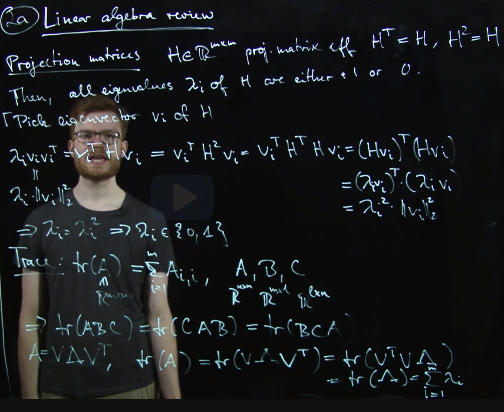 2a) Linear algebra review
Projection matrices H∈ℝ^{m×m} proj. matrix iff Hᵀ = H, H² = H
Then, all eigenvalues λᵢ of H are either +1 or 0.
⌈Pick eigenvector vᵢ of H
λᵢvᵢvᵢᵀ = vᵢᵀHvᵢ = vᵢᵀH²vᵢ = vᵢᵀHᵀHvᵢ = (Hvᵢ)ᵀ(Hvᵢ)
λᵢ·‖vᵢ‖₂² = (λᵢvᵢ)ᵀ·(λᵢvᵢ)
= λᵢ²·‖vᵢ‖₂²
⇒ λᵢ = λᵢ² ⇒ λᵢ ∈ {0, 1}
Trace: tr(A) = Σ_{i=1}^{m} A_{i,i}, A, B, C
⇒ tr(ABC) = tr(CAB) = tr(BCA)
A = VΛVᵀ, tr(A) = tr(VΛVᵀ) = tr(VᵀVΛ)
= tr(Λ) = Σ_{i=1}^{m} λᵢ